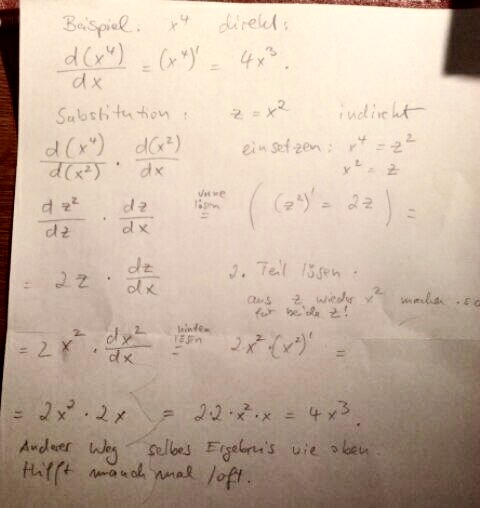 Beispiel: x⁴ direkt:
d(x⁴)/dx = (x⁴)' = 4x³.
Substitution: z = x² indirekt
d(x⁴)/d(x²) · d(x²)/dx einsetzen: x⁴ = z²
x² = z
dz²/dz · dz/dx vorne lösen = ((z²)' = 2z) =
= 2z · dz/dx 2. Teil lösen.
aus z wieder x² machen
für beide z!
= 2x² · dx²/dx hinten lösen = 2x²·(x²)' =
= 2x² · 2x = 2·2·x²·x = 4x³.
Anderer Weg selbes Ergebnis wie oben.
Hilft manchmal/oft.